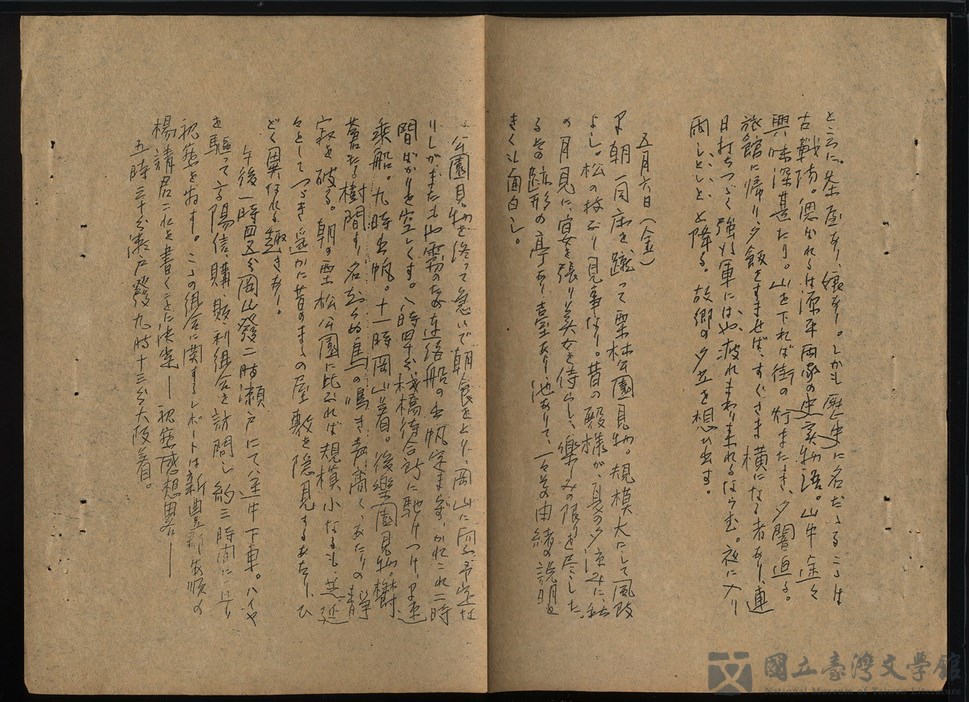 ところに茶屋あり、娘あり。しかも歴史に名だゝるここは
古戦場。偲ばれるは源平両家の史実物語。山中途々
興味深甚たり。山を下れば街の灯またたき、夕闇迫る。
旅館に帰り夕飯をすませば、すぐさま横になる者あり、連
日打ちつゞく強行軍にはや疲れまわりまれるならむ。夜に入り
雨しとしとと降る。故郷の夕立を想ひ出す。
五月六日（金）
早朝一同床を蹴って栗林公園見物。規模大にして風致
よし。松の枝ぶり見事なり。昔の殿様が夏の夕涼みに、秋
の月見に宴を張り美女を侍らし、楽みの限りを尽した
る其の跡形の亭あり臺あり池ありて、一々その由緒の説明を
きくに面白し。
公園見物を終って急いで朝食をとり、岡山に向ふ予定な
りしがまたも山雲のため連絡船の出帆定まらず、かれこれ二時
間ばかりを空しくす。八時四十分桟橋待合所に馳けつけ、早速
乗船。九時出帆。十一時岡山着。後楽園見物、樹
蒼たる樹間より名知らぬ鳥の鳴き声聞く、あたりの静
寂を破る。朝の栗林公園に比ぶれば規模小なるも、其
々としてつゞき遥かに昔のまゝの屋敷を隠見するあたり、ひ
どく異なれる趣きあり。
午後一時四五分岡山發二時瀬戸にて途中下車。ハイヤ
を驅って高陽信、購、販、利組合を訪問し約三時間に亘り
視察をおす。この組合に関するレポートは新豊新的順の
楊請君これを書くことに決定── 視察感想畧──
五時三十分瀬戸發九時十三分大阪着。
國立臺灣文學館
National Museum of Taiwan Literature